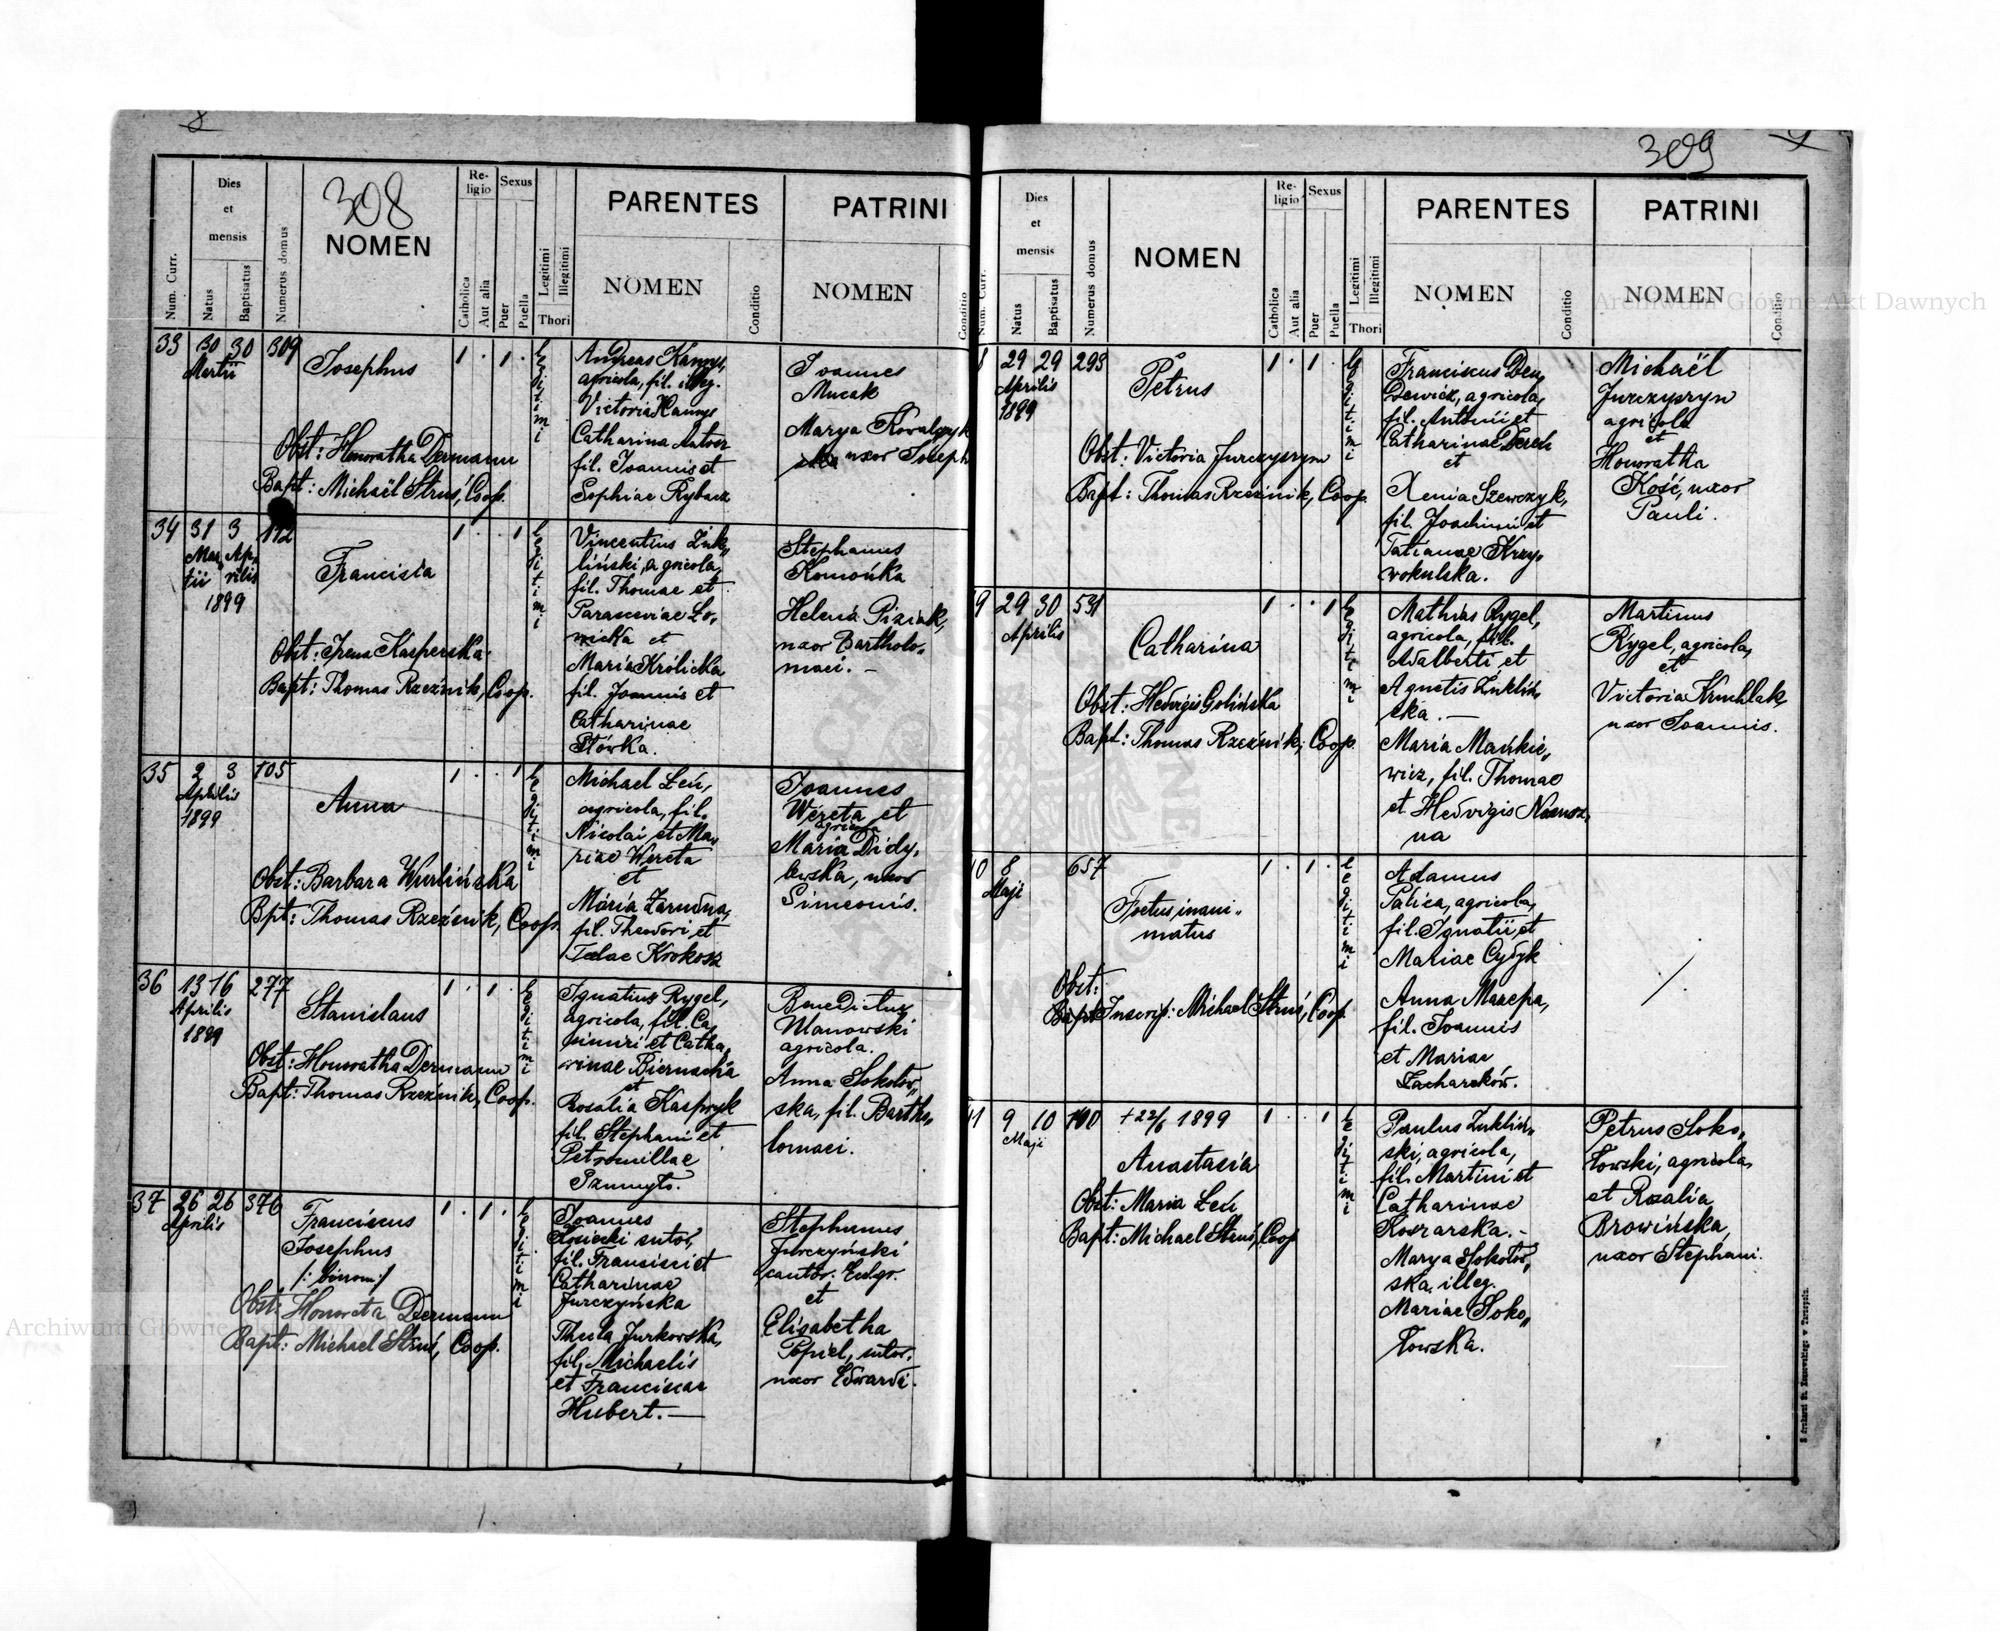 8
308
Num. Curr.
Dies et mensis
Natus
Baptisatus
Numerus domus
NOMEN
Religio
Catholica
Aut alia
Sexus
Puer
Puella
Legitimi
Illegitimi
Thori
PARENTES
NOMEN
Conditio
PATRINI
NOMEN
Conditio
33 30 30 309
Martii
Josephus
1 . 1 .
Legitimi
Obst: Honoratha Dermann
Bapt: Michaël Struś, Coop.
Andreas
agricola, fil. illeg.
Victoria
Catharina
fil. Joannis et
Sophiae Rybacz
Joannes
Mucak
Marya Kowalczyk
uxor Joseph
34 31 3 112
Martii Aprilis
1899
Francisca
1 . . 1
Legitimi
Obst: Irena Kasperska
Bapt: Thomas Rzeźnik, Coop.
Vincentius Żuk„
liński, agricola,
fil. Thomae et
Parasceviae Ło„
wicka et
Maria Królicka
fil. Joannis et
Catharinae
Słówka.
Stephanus
Komońka
Helena Piziak,
uxor Bartholo„
maei. —
35 2 3 105
Aprilis
1899
Anna
1 . . 1
Legitimi
Obst: Barbara Wurlińska
Bpt: Thomas Rzeźnik, Coop.
Michael Łeń,
agricola, fil.
Nicolai et Ma„
riae Wereta
et
Maria Zarudna,
fil. Theodori et
Teclae Krokosz
Joannes
Wereta et
agricola
Maria Didy„
uxor
Simeonis.
36 13 16 277
Aprilis
1899
Stanislaus
1 . 1 .
Legitimi
Obst: Honoratha Dermann
Bapt: Thomas Rzeźnik, Coop.
Ignatius Rygel,
agricola, fil. Ca„
simiri et Catha„
rinae Biernacka
et
Rosalia Kasprzyk
fil. Stephani et
Petronillae
Benedictus
Ulanowski
agricola.
Anna Sokołow„
ska, fil. Bartho„
lomaei.
37 26 26 376
Aprilis
Franciscus
Josephus
/: binom :/
1 . 1 .
Legitimi
Obst: Honorata Dermann
Bapt: Michael Struś, Coop.
Joannes
Kosiecki sutor,
fil. Francisci et
Catharinae
Jurczyńska
Thecla Jurkowska,
fil. Michaelis
et Franciscae
Hubert. —
Stephanus
Jurczyński
cantor.
et
Elisabetha
Popiel, sutor.
uxor Edwardi.
309
9
Num. Curr.
Dies et mensis
Natus
Baptisatus
Numerus domus
NOMEN
Religio
Catholica
Aut alia
Sexus
Puer
Puella
Legitimi
Illegitimi
Thori
PARENTES
NOMEN
Conditio
PATRINI
NOMEN
Conditio
8 29 29 293
Aprilis
1899
Petrus
1 . 1 .
Legitimi
Obst: Victoria Jurczyszyn
Bapt: Thomas Rzeźnik, Coop.
Franciscus Den„
dewicz, agricola,
fil. Antonii et
Catharinae Derech
et
Xenia Szewczyk,
fil. Joachimi et
Tatianae Krzy„
wokulska.
Michaël
Jurczyszyn
agricola
et
Honoratha
Kość, uxor
Pauli.
9 29 30 531
Aprilis
Catharina
1 . . 1
Legitimi
Obst: Hedvigis Golińska
Bapt: Thomas Rzeźnik, Coop.
Mathias Rygel,
agricola, fil.
Adalberti et
Agnetis Żukliń„
ska. —
Maria Mańkie„
wicz, fil. Thomae
et Hedvigis
Martinus
Rygel, agricola,
et
Victoria Kruchlak,
uxor Joannis.
10 8 657
Maji
Foetus inani„
matus
1 . 1 .
Legitimi
Obst:
Inscrip: Michael Struś, Coop.
Adamus
Palica, agricola,
fil. Ignatii et
Mariae Cydyk
Anna Mazepa,
fil. Joannis
et Mariae
Zacharków.
/
11 9 10 100
Maji
+ 22/6 1899
Anastasia
1 . . 1
Legitimi
Obst: Maria Łeń
Bapt: Michael Struś, Coop
Paulus Żukliń„
ski, agricola,
fil. Martini et
Catharinae
Kozrarska. -
Marya Sokołow„
ska, illeg.
Mariae Soko„
łowska.
Petrus Soko„
łowski, agricola,
et Rozalia
Browińska,
uxor Stephani.
Archiwum Główne Akt Dawnych
Archiwum Główne Akt Dawnych